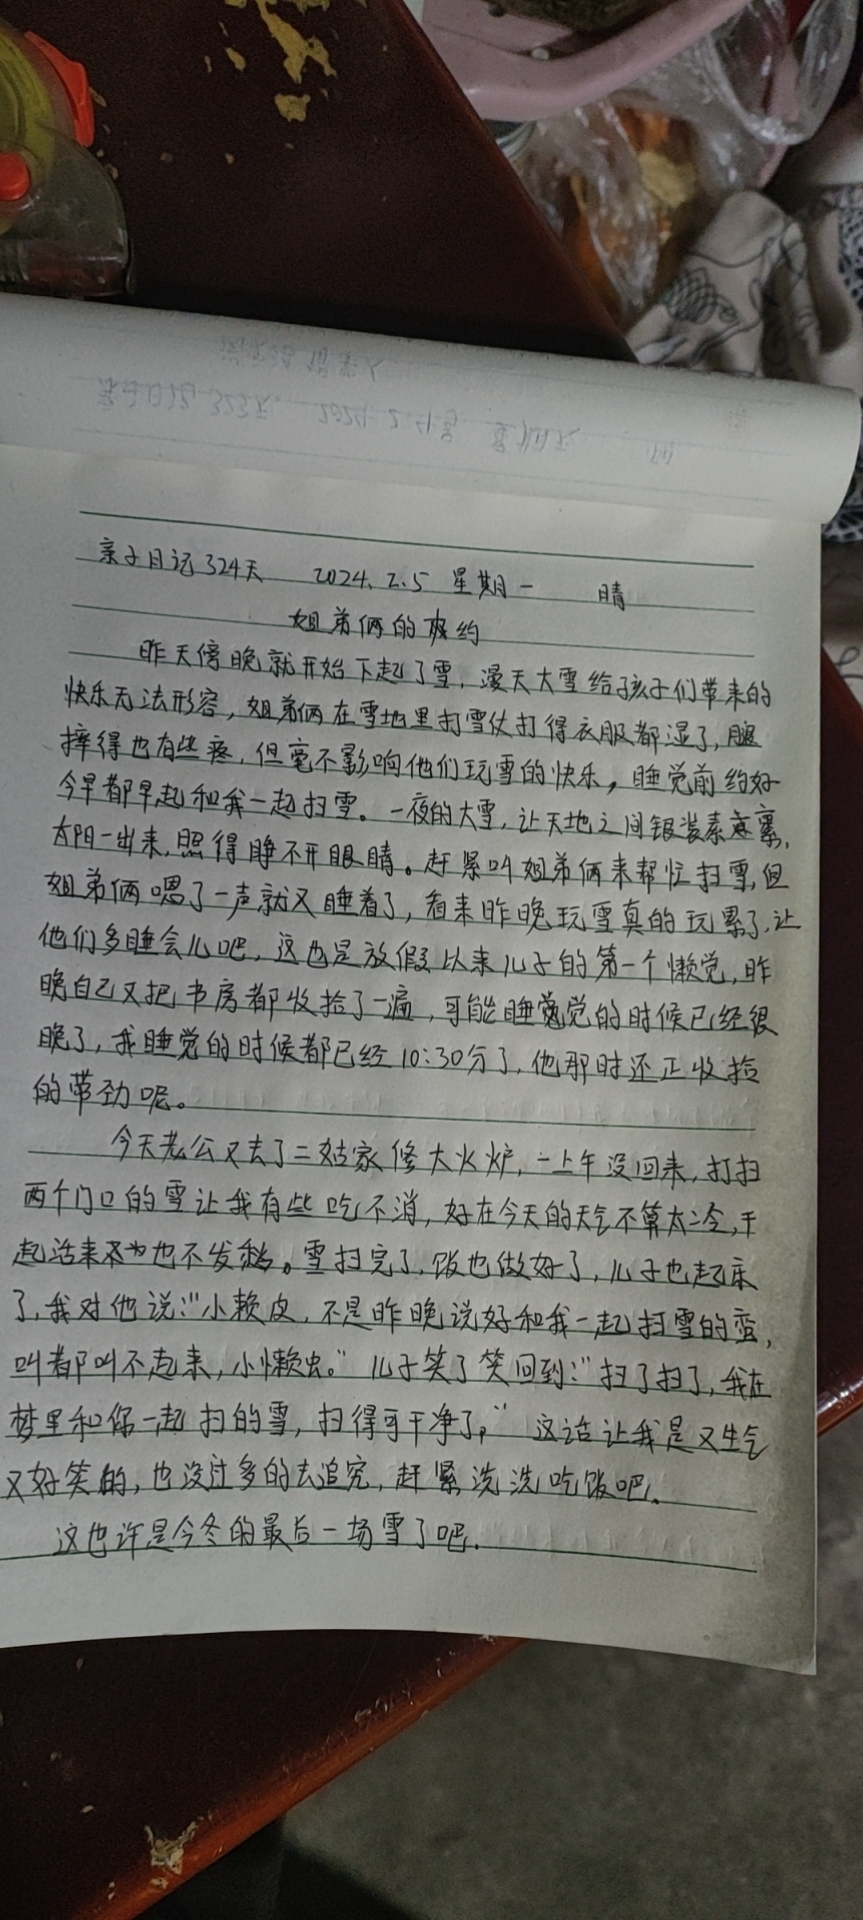 亲子日记324天 2024.2.5 星期一 晴
姐弟俩的爽约
昨天傍晚就开始下起了雪，漫天大雪给孩子们带来的
快乐无法形容，姐弟俩在雪地里打雪仗打得衣服都湿了，腿
摔得也有些疼，但毫不影响他们玩雪的快乐，睡觉前约好
今早都早起和我一起扫雪。一夜的大雪，让天地之间银装素裹，
太阳一出来，照得睁不开眼睛。赶紧叫姐弟俩来帮忙扫雪，但
姐弟俩嗯了一声就又睡着了，看来昨晚玩雪真的玩累了，让
他们多睡会儿吧，这也是放假以来儿子的第一个懒觉，昨
晚自己又把书房都收拾了一遍，可能睡觉的时候已经很
晚了，我睡觉的时候都已经10:30分了，他那时还正收捡
的带劲呢。
今天老公又去了二姑家修大火炉，一上午没回来，打扫
两个门口的雪让我有些吃不消，好在今天的天气不算太冷，干
起活来也不发愁。雪扫完了，饭也做好了，儿子也起床
了，我对他说："小赖皮，不是昨晚说好和我一起扫雪的蛮，
叫都叫不起来，小懒虫。"儿子笑了笑回到："扫了扫了，我在
梦里和你一起扫的雪，扫得可干净了，"这话让我是又生气
又好笑的，也没过多的去追究，赶紧洗洗吃饭吧。
这也许是今冬的最后一场雪了吧。